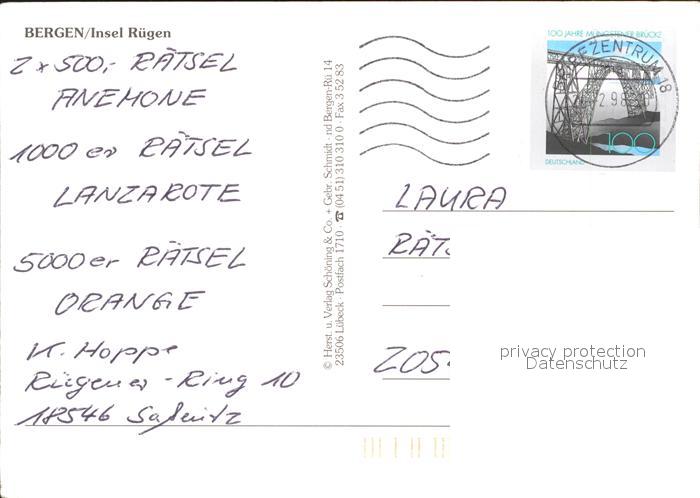 BERGEN/Insel Rügen
2 x 500,- RÄTSEL
ANEMONE
1000 er RÄTSEL
LANZAROTE
5000 er RÄTSEL
ORANGE
K. Hoppe
Rügener-Ring 10
18546 Saßnitz
© Herst. u. Verlag Schöning & Co. + Gebr. Schmidt · nd Bergen-Rü 14
23506 Lübeck · Postfach 1710 · ☎ (04 51) 310 310 0 · Fax 3 52 83
100 JAHRE MÜNGSTENER BRÜCKE
100
DEUTSCHLAND
18
LAURA
RÄTS
205
privacy protection
Datenschutz